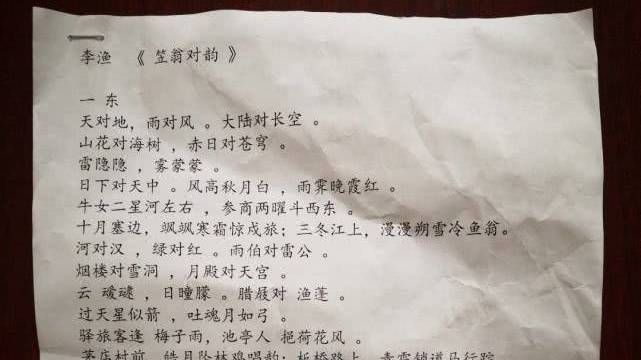 李渔 《 笠翁对韵 》
一 东
天对地，雨对风 。大陆对长空 。
山花对海树 ，赤日对苍穹 。
雷隐隐 ，雾蒙蒙 。
日下对天中 。风高秋月白 ，雨霁晚霞红 。
牛女二星河左右 ，参商两曜斗西东 。
十月塞边，飒飒寒霜惊戍旅；三冬江上，漫漫朔雪冷鱼翁。
河对汉 ，绿对红 。雨伯对雷公 。
烟楼对雪洞 ，月殿对天宫 。
云 叆叇 ，日曈朦 。腊屐对 渔蓬 。
过天星似箭 ，吐魂月如弓 。
驿旅客逢 梅子雨，池亭人 挹荷花风 。
茅店村前 ，皓月坠林鸡唱韵；板桥路上 ，青霜锁道马行踪